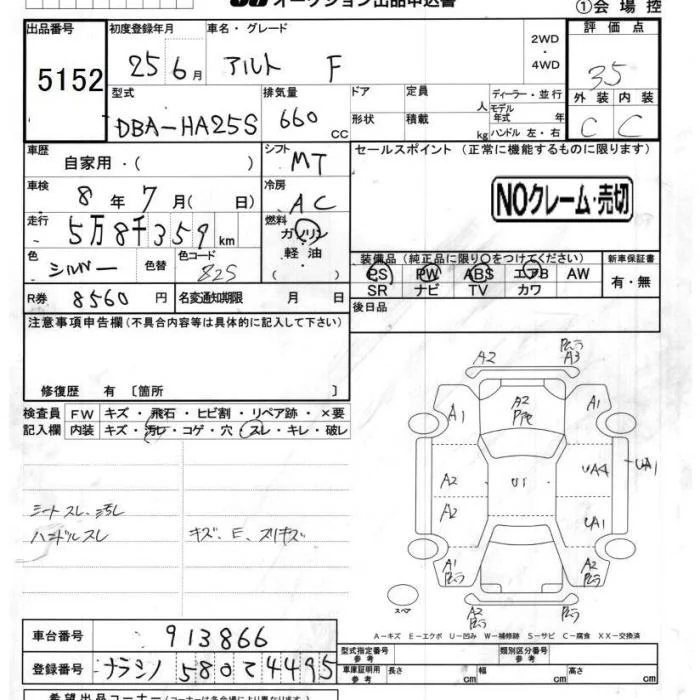 オークション出品申込書
①会場控
出品番号 初度登録年月 車名・グレード 2WD・4WD 評価点
5152 25 6月 アルト F 35
型式 排気量 ドア 定員 人 ディーラー・並行 外装 内装
DBA-HA25S 660 cc 形状 積載 kg モデル年式 年 ハンドル 左・右 C C
車歴 自家用・( ) シフト MT セールスポイント (正常に機能するものに限ります)
車検 8年7月( 日) 冷房 AC NOクレーム・売切
走行 5万8千359km 燃料 ガソリン 軽油 ( )
色 シルバー 色替 色コード 82S 装備品 (純正品に限り○をつけてください) 新車保証書
PS PW ABS エアB AW 有・無
SR ナビ TV カワ
R券 8560円 名変通知期限 月 日 後日品
注意事項申告欄(不具合内容等は具体的に記入して下さい)
修復歴 有 〔箇所 〕
検査員 FW キズ・飛石・ヒビ割・リペア跡・×要
記入欄 内装 キズ・汚れ・コゲ・穴・スレ・キレ・破レ
シートスレ、汚れ
ハンドルスレ キズ、E、スリキズ
A2 A3
A1 A2 A1
A2 U1 UA4 UA1
A2 UA1
A1 A2
A2 A2
スペア
A-キズ E-エクボ U-凹み W-補修跡 S-サビ C-腐食 XX-交換済
車台番号 913866 型式指定番号 参考 類別区分番号 参考
登録番号 ナラシノ 580 て 4495 車庫証明用 参考 長さ cm 幅 cm 高さ cm
希望出品コーナー (コーナーは各会場により異なります)